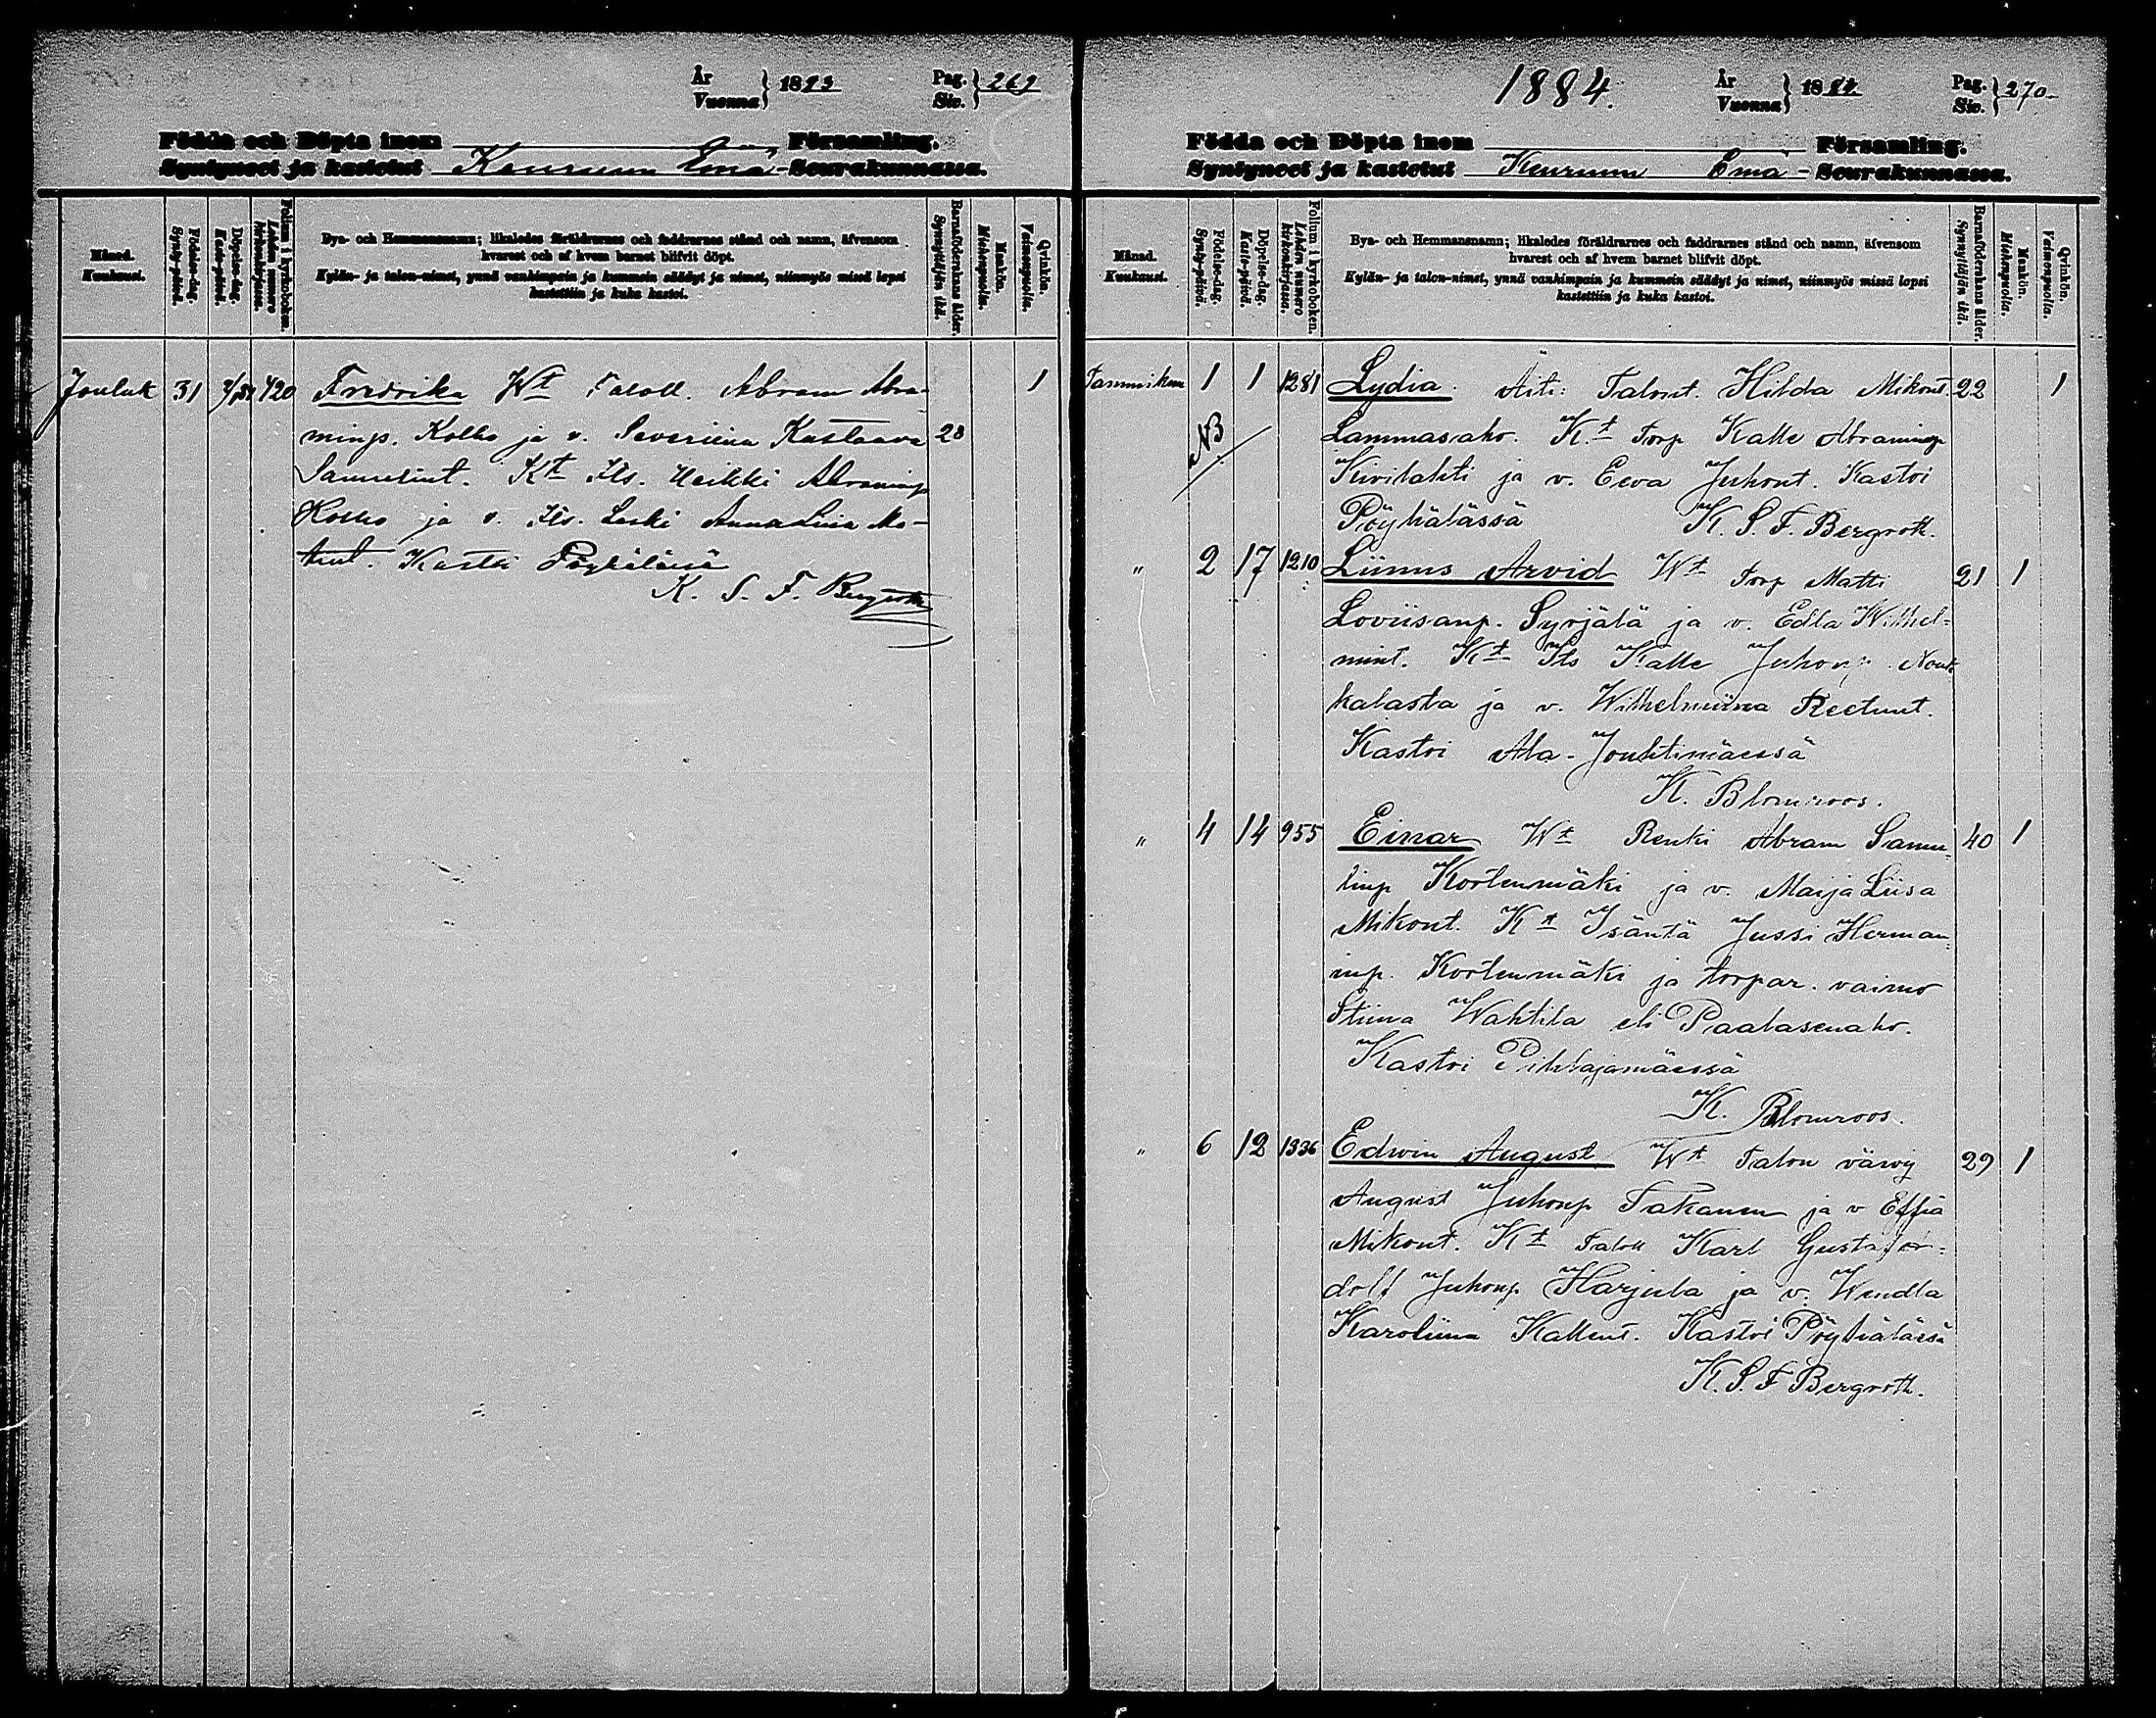 År
Vuonna } 1883
Pag.
Siv. } 269
Födda och Döpta inom Församling.
Syntyneet ja kastetut Keuruun Emä-Seurakunnassa.
Månad.
Kuukausi.
Födelse-dag.
Synty-päivä.
Döpelse-dag.
Kaste-päivä.
Folium i kyrkoboken.
Lehden numero kirkonkirjassa.
Bya- och Hemmansnamn; likaledes föräldrarnes och faddrarnes stånd och namn, äfvensom
hvarest och af hvem barnet blifvit döpt.
Kylän- ja talon-nimet, ynnä vanhimpain ja kummein säädyt ja nimet, niinmyös missä lapsi
kastettiin ja kuka kastoi.
Barnaföderskans ålder.
Synnyttäjän ikä.
Mankön.
Miehenpuolia.
Qvinkön.
Vaimonpuolia.
Jouluk 31 420 Fredrika Wt Taloll. Abram Abra- 1
minp. Kolho ja v. Severiina Kustaava 28
Samulint. Kt Its. Heikki Abraminp
Kolho ja v. Its. Leski Anna Liisa Ma-
tint. Kastoi Pöyhölässä
K. S. F. Bergroth
1884.
År
Vuonna } 1884
Pag.
Siv. } 270
Födda och Döpta inom Församling.
Syntyneet ja kastetut Keuruun Emä-Seurakunnassa.
Månad.
Kuukausi.
Födelse-dag.
Synty-päivä.
Döpelse-dag.
Kaste-päivä.
Folium i kyrkoboken.
Lehden numero kirkonkirjassa.
Bya- och Hemmansnamn; likaledes föräldrarnes och faddrarnes stånd och namn, äfvensom
hvarest och af hvem barnet blifvit döpt.
Kylän- ja talon-nimet, ynnä vanhimpain ja kummein säädyt ja nimet, niinmyös missä lapsi
kastettiin ja kuka kastoi.
Barnaföderskans ålder.
Synnyttäjän ikä.
Mankön.
Miehenpuolia.
Qvinkön.
Vaimonpuolia.
Tammikuu 1 1 1281 Lydia. Äiti: Talont. Hilda Mikont. 22 1
NB Lammasaho. Kt Torp Kalle Abraminp
Kivilahti ja v. Eeva Juhont. Kastoi
Pöyhälässä K. S. F. Bergroth.
" 2 17 1210 Liinus Arvid Wt Torp Matti 21 1
Loviisanp. Syrjälä ja v. Edla Wilhel=
mint. Kt Its Kalle Juhonp
kalasta ja v. Wilhelmiina Reetunt.
Kastoi Ala-Jouhtimäessä
K. Blomroos.
" 4 14 955 Einar Wt Renki Abram Samu= 40 1
linp Kortenmäki ja v. Maija Liisa
Mikont. Kt Isäntä Jussi Herman=
inp. Kortenmäki ja torpar. vaimo
Stiina Wahtila eli Paalasenaho.
Kastoi Pihlajamäessä
K. Blomroos.
" 6 12 1336 Edwin August Wt Talon vävy 29 1
August Juhonp Takanen ja v Effia
Mikont. Kt Taloll Karl Gustaf
dolf Juhonp Harjula ja v. Wendla
Karoliina Kallent. Kastoi Pöyhälässä
K. S. F Bergroth.